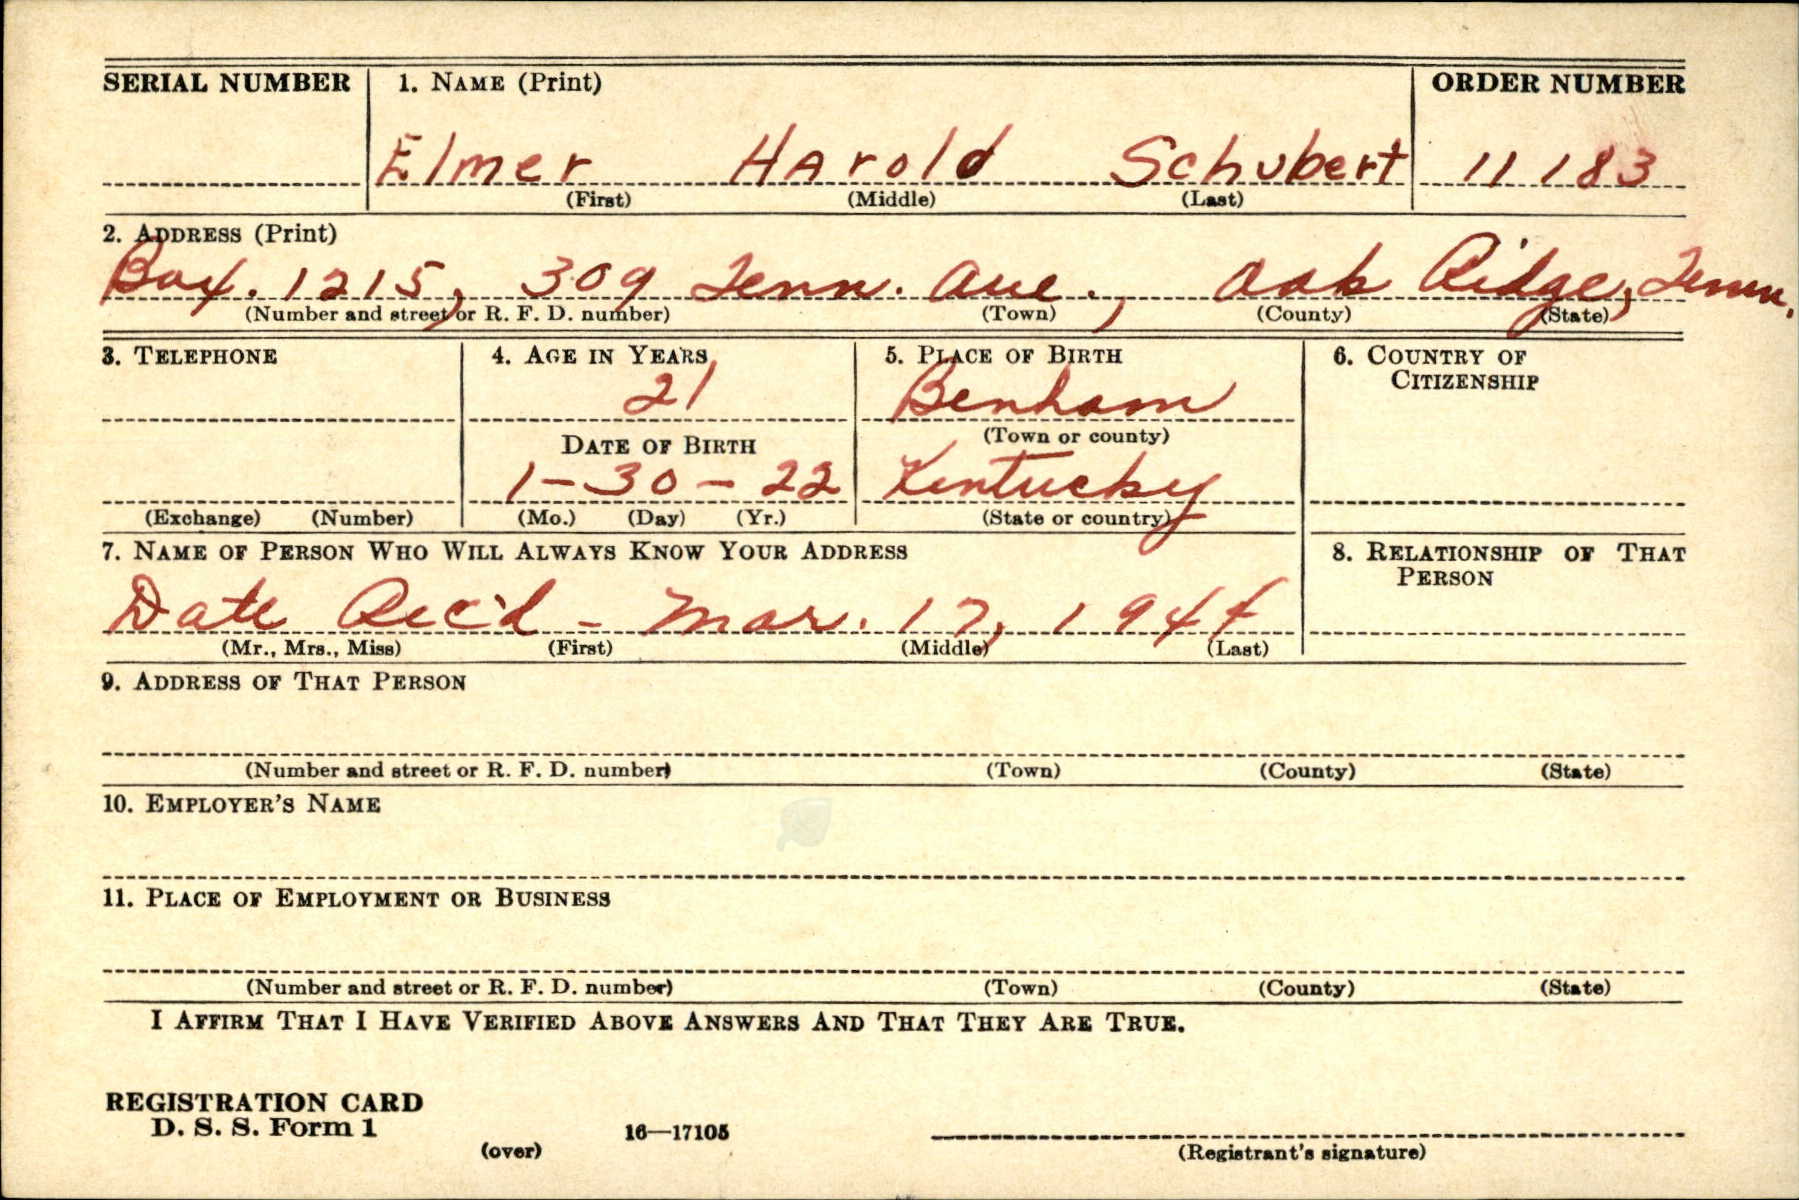 SERIAL NUMBER 1. NAME (Print) ORDER NUMBER
Elmer HArold Schubert 11183
(First) (Middle) (Last)
2. ADDRESS (Print)
Box. 1215, 309 Tenn. Ave., Oak Ridge, Tenn.
(Number and street or R. F. D. number) (Town) (County) (State)
3. TELEPHONE 4. AGE IN YEARS 5. PLACE OF BIRTH 6. COUNTRY OF
CITIZENSHIP
21 Benham
DATE OF BIRTH (Town or county)
1-30-22 Kentucky
(Exchange) (Number) (Mo.) (Day) (Yr.) (State or country)
7. NAME OF PERSON WHO WILL ALWAYS KNOW YOUR ADDRESS 8. RELATIONSHIP OF THAT
PERSON
Date Rec'd - Mar. 17, 1944
(Mr., Mrs., Miss) (First) (Middle) (Last)
9. ADDRESS OF THAT PERSON
(Number and street or R. F. D. number) (Town) (County) (State)
10. EMPLOYER'S NAME
11. PLACE OF EMPLOYMENT OR BUSINESS
(Number and street or R. F. D. number) (Town) (County) (State)
I AFFIRM THAT I HAVE VERIFIED ABOVE ANSWERS AND THAT THEY ARE TRUE.
REGISTRATION CARD
D. S. S. Form 1 16—17105
(over) (Registrant's signature)